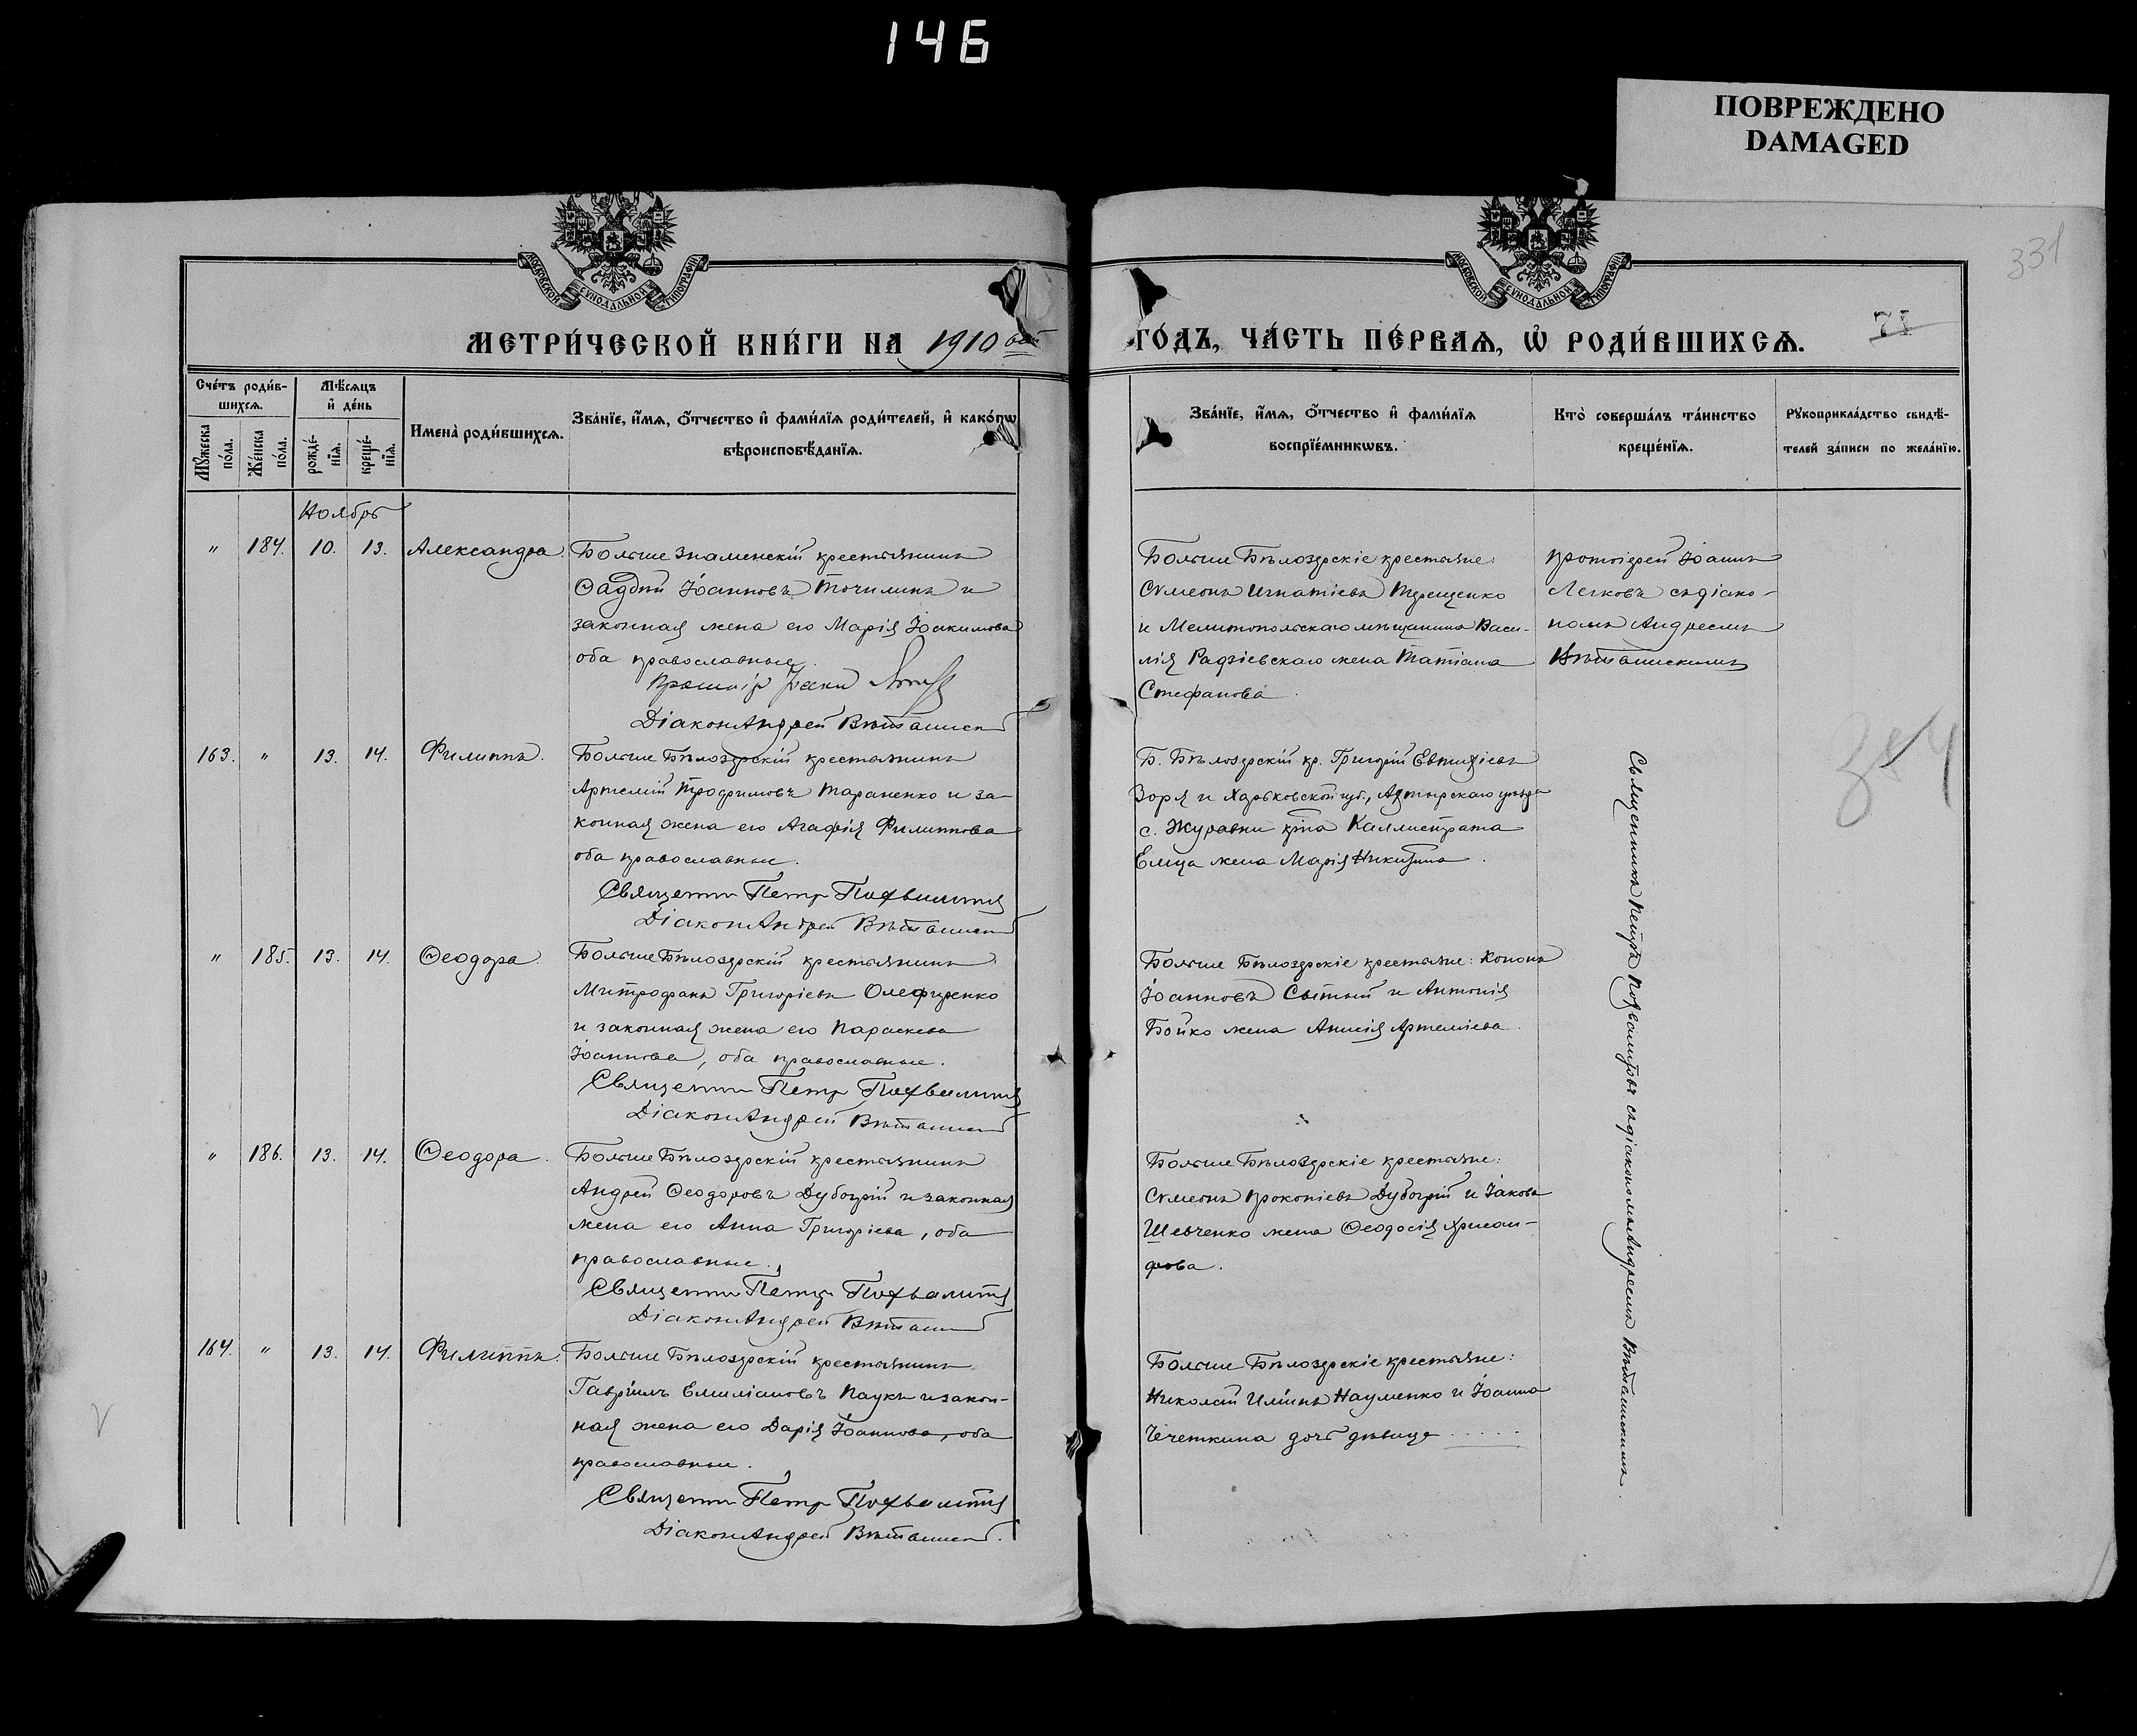 146
ПОВРЕЖДЕНО
DAMAGED
331
МОСКОВСКОЙ СѴНОДАЛЬНОЙ ТИПОГРАФІИ
МОСКОВСКОЙ СѴНОДАЛЬНОЙ ТИПОГРАФІИ
МЕТРИ́ЧЕСКОЙ КНИ́ГИ НА 1910 ый
ГО́ДЪ, ЧА́СТЬ ПЕ́РВАѦ, Ѡ҆ РОДИ́ВШИХСѦ.
71
Сче́тъ роди́в-
шихсѧ.
Мꙋ́жеска по́ла.
Же́нска по́ла.
Мѣ́сѧцъ
и҆ де́нь
рожде́-
нїѧ.
креще́-
нїѧ.
Имена̀ роди́вшихсѧ.
Зва́нїе, и҆́мѧ, ѻ҆́тчество и҆ фами́лїѧ роди́телей, и҆ како́гѡ
вѣроисповѣ́данїѧ.
Зва́нїе, и҆́мѧ, ѻ҆́тчество и҆ фами́лїѧ
воспрїе́мникѡвъ.
Кто̀ соверша́лъ та́инство
креще́нїѧ.
Рꙋкоприкла́дство свидѣ́-
телей за́писи по жела́нїю.
Ноябрь
" 184. 10. 13. Александра.
Больше Знаменскій крестьянинъ
Ѳаддей Іоанновъ Точилинъ и
законная жена его Марія Іоакимова
оба православные.
Діаконъ Андрей
Больше Бѣлозерскіе крестьяне:
Сѵмеонъ Игнатіевъ Терещенко
и Мелитопольскаго мѣщанина Васи-
лія Радзіевскаго жена Татіана
Стефанова.
Протоіерей Іоаннъ
Легковъ съ діако-
номъ Андреемъ
163. " 13. 14. Филиппъ.
Больше Бѣлозерскій крестьянинъ
Артемій Трофимовъ Тараненко и за-
конная жена его Агафія Филиппова
оба православные.
Священник Петр Похвалитъ
Діаконъ Андрей
Б. Бѣлозерскій кр. Григорій Евтихіевъ
Зоря и Харьковской губ., Ахтырскаго уѣзда
с. Журавки кр-на Каллистрата
Емца жена Марія Никитина.
384
" 185. 13. 14. Ѳеодора.
Больше Бѣлозерскій крестьянинъ
Митрофанъ Григоріевъ Олефиренко
и законная жена его Параскева
Іоаннова, оба православные.
Священник Петр
Діаконъ Андрей
Больше Бѣлозерскіе крестьяне: Кононъ
Іоанновъ Сытый и Антонія
Бойко жена Анисія Артеміева.
" 186. 13. 14. Ѳеодора.
Больше Бѣлозерскій крестьянинъ
Андрей Ѳеодоровъ и законная
жена его Анна Григоріева, оба
православные.
Священник Петр
Діаконъ Андрей
Больше Бѣлозерскіе крестьяне:
Сѵмеонъ Прокопіевъ и Іакова
Шевченко жена Ѳеодосія Ксенофон-
това.
164. " 13. 14. Филиппъ.
Больше Бѣлозерскій крестьянинъ
Гавріилъ Емиліановъ Паукъ и закон-
ная жена его Дарія Іоаннова, оба
православные.
Священник Петр
Діаконъ Андрей
Больше Бѣлозерскіе крестьяне:
Николай Илiинъ Науменко и Іоанна
Чечеткина дочь дѣвица
Священникъ Петръ съ діакономъ Андреемъ